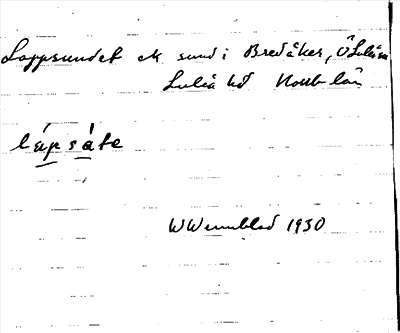 Loppsundet ek sund i Bredåker, Ö Luleå sn
Luleå hd Nortb län
W Wennblad 1930